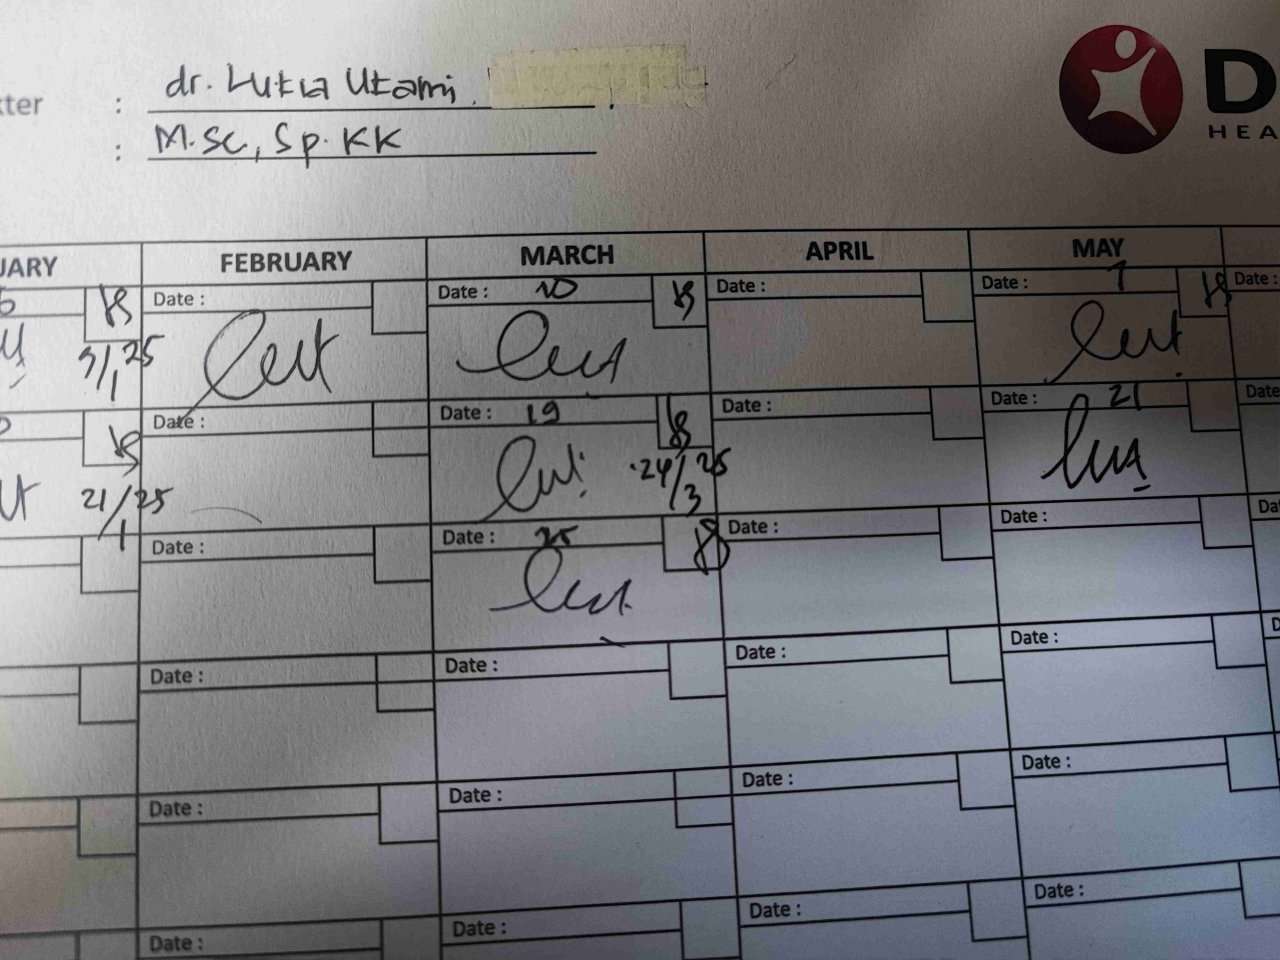 kter : dr. Lutia Utami
: M.Sc, Sp.KK
D
HEA
UARY FEBRUARY MARCH APRIL MAY
Date : Date : 10 Date : Date : 7 Date :
3/1 25
Date : Date : 19 Date : Date : 21 Date
21/1 25 24/3 25
Date : Date : 25 Date : Date : Da
Date : Date : Date : Date : D
Date : Date : Date : Date :
Date : Date : Date : Date :